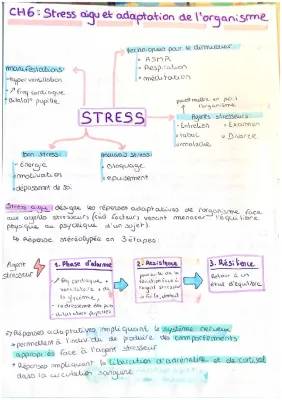 CH6 : Stress aigu et adaptation de l'organisme
techniques pour le diminuer
• ASMR
• Respiration
• méditation
manifestations
• hyperventilation
• ↗ freq cardiaque
pupille
STRESS
Agents stresseurs
• Entretien • Examen
• tabac • Divorce
• maladie
bon stress
• énergie
• motivation
• dépassement de soi
mauvais stress
• bloquage
• épuisement
Stress aigu : désigne les réponses adaptatives de l'organisme face
aux agents stresseurs (cad facteurs venant menacer l'équilibre
physique ou psychologique d'un sujet).
↳ Réponse stéréotypée en 3 étapes
Agent
stresseur
1. Phase d'alarme
↗ frq cardiaque, +
ventilatoire, + de
la glycémie,
pupilles
2. Resistance
3. Résilience
Retour à un
état d'équilibre
→ Réponses adaptatives impliquant le système nerveux
→ permettent à l'indiv de produire des comportements
appropriés face à l'agent stresseur
→ Réponses impliquant la libération d'adrénaline et de cortisol
dans la circulation sanguine